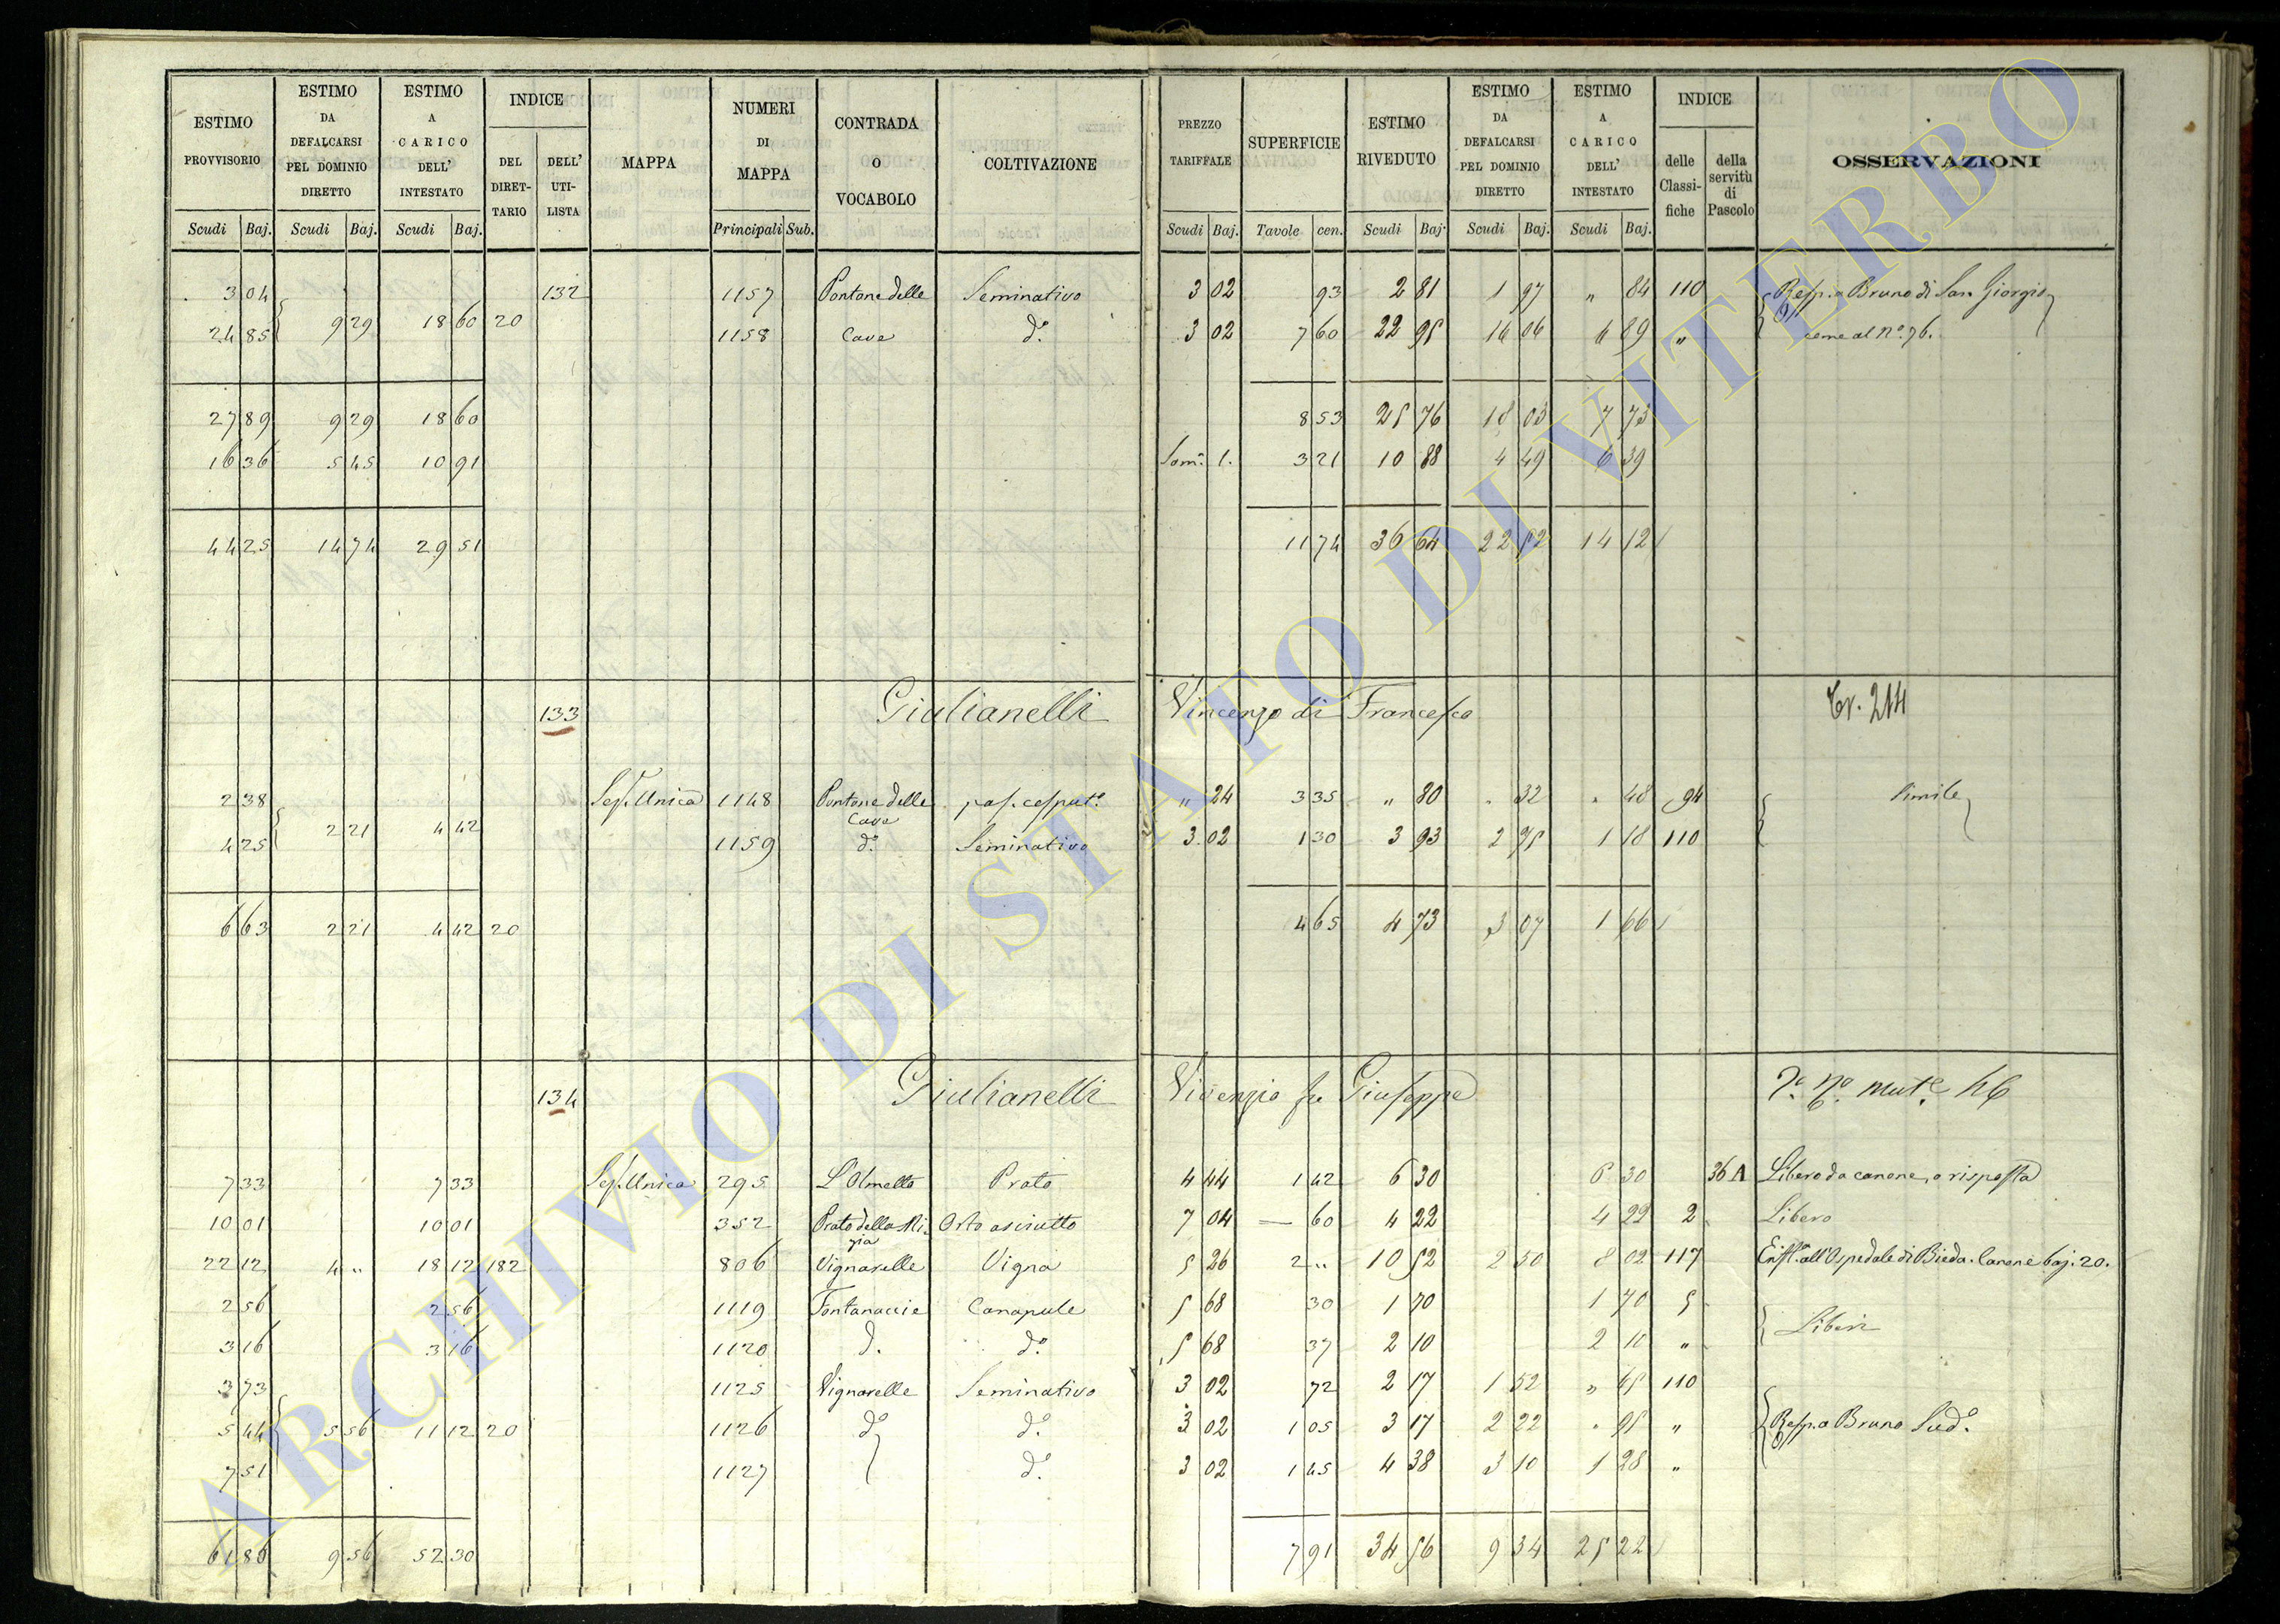 ESTIMO PROVVISORIO Scudi Baj. | ESTIMO DA DEFALCARSI PEL DOMINIO DIRETTO Scudi Baj. | ESTIMO A CARICO DELL' INTESTATO Scudi Baj. | INDICE DEL DIRETTARIO | DELL' UTILISTA | MAPPA | NUMERI DI MAPPA Principali Sub. | CONTRADA O VOCABOLO | COLTIVAZIONE | PREZZO TARIFFALE Scudi Baj. | SUPERFICIE Tavole cen. | ESTIMO RIVEDUTO Scudi Baj. | ESTIMO DA DEFALCARSI PEL DOMINIO DIRETTO Scudi Baj. | ESTIMO A CARICO DELL' INTESTATO Scudi Baj. | INDICE delle Classifiche | della servitù di Pascolo | OSSERVAZIONI
3 04 132 1157 Pontone delle Seminativo 3 02 93 2 81 1 97 „ 84 110 Resp. a Bruno di San Giorgio
24 85 9 29 18 60 20 1158 Cave d.o 3 02 7 60 22 95 16 06 6 89 „ come al N.o 76.
27 89 9 29 18 60 8 53 25 76 18 03 7 73
16 36 5 45 10 91 Som. 1. 3 21 10 88 4 49 6 39
44 25 14 74 29 51 11 74 36 64 22 52 14 12
133 Giulianelli Vincenzo di Francesco Tr. 214
2 38 Sez. Unica 1148 Pontone delle Cave pas. cesput.o „ 24 3 35 „ 80 „ 32 „ 48 94 Simile
4 25 2 21 4 42 1159 d.o Seminativo 3 02 1 30 3 93 2 75 1 18 110
6 63 2 21 4 42 20 4 65 4 73 3 07 1 66
134 Giulianelli Vincenzo fu Giuseppe
7 33 7 33 Sez. Unica 295 L'Olmetto Prato 4 44 1 42 6 30 6 30 36 A Libero da canone, o risposta
10 01 10 01 352 Prato della Ri- Orto asciutto 7 04 — 60 4 22 4 22 2 Libero
22 12 4 „ 18 12 182 806 Vignarelle Vigna 5 26 2 „ 10 52 2 50 8 02 117 Enft. all'Ospedale di Bieda. Canone baj. 20.
2 56 2 56 1119 Fontanaccie Canapule 5 68 30 1 70 1 70 5 Liberi
3 16 3 16 1120 d. d.o 5 68 37 2 10 2 10 „
3 73 1125 Vignarelle Seminativo 3 02 72 2 17 1 52 „ 65 110
5 44 5 56 11 12 20 1126 d.o d.o 3 02 1 05 3 17 2 22 „ 95 „ Resp. a Bruno Sud.o
7 51 1127 d.o 3 02 1 45 4 38 3 10 1 28 „
61 86 9 56 52 30 7 91 34 56 9 34 25 22
ARCHIVIO DI STATO DI VITERBO